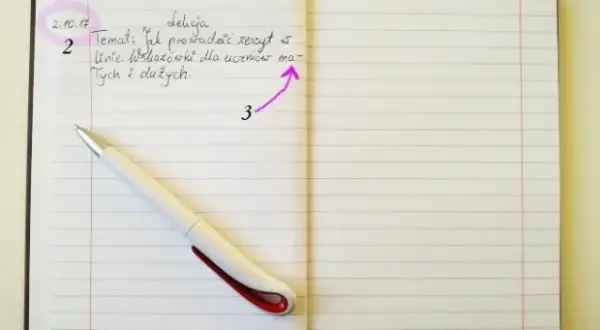 2.10.17 Lekcja
2 Temat: Jak prowadzić zeszyt w
linie. Wskazówki dla uczniów ma-
łych i dużych.
3